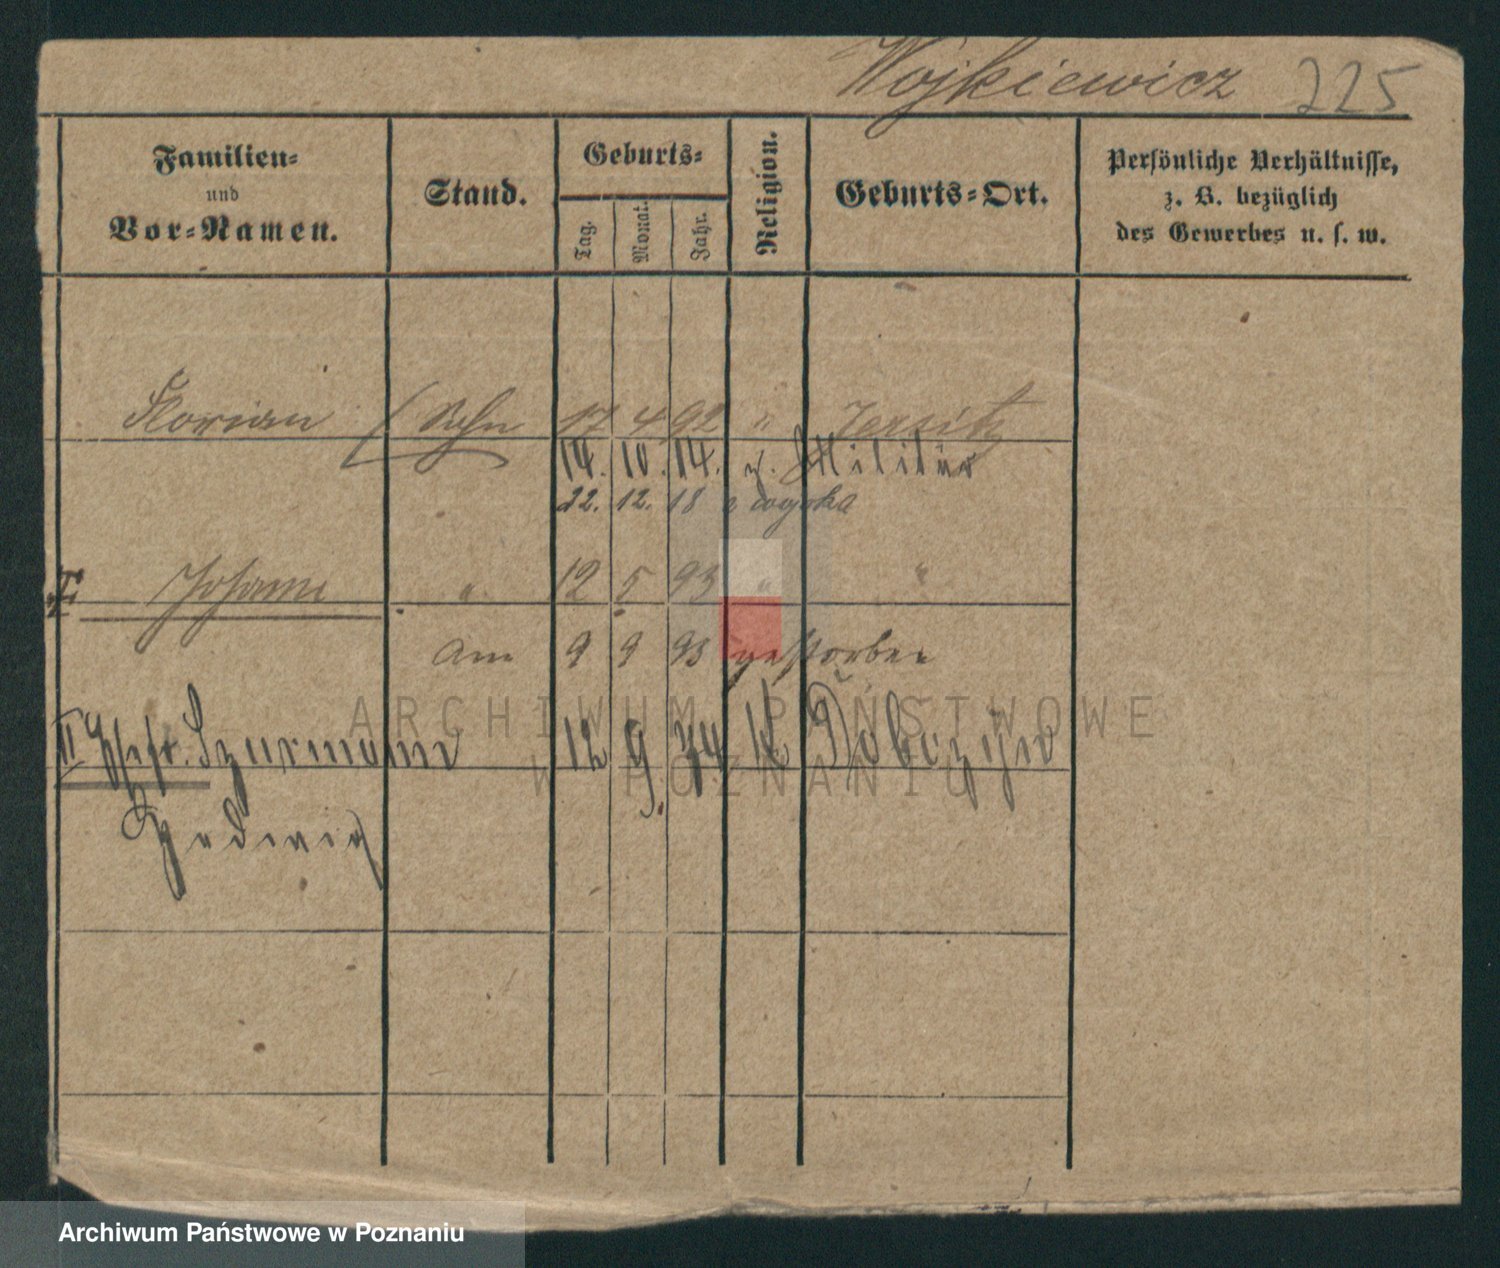 Wojkiewicz 225
Familien= und Vor=Namen.
Stand.
Geburts=
Tag. Monat. Jahr.
Religion.
Geburts=Ort.
Persönliche Verhältnisse,
z. B. bezüglich
des Gewerbes u. s. w.
Florian Sohn 17 4 92 " Jersitz
14. 10. 14. z. Militär
22. 12. 18 z wojska
Johann " 12 5 93 " "
am 9 9 93 gestorben
II Szurmann 12 9 74 K
Hedwig
ARCHIWUM PAŃSTWOWE
W POZNANIU
Archiwum Państwowe w Poznaniu